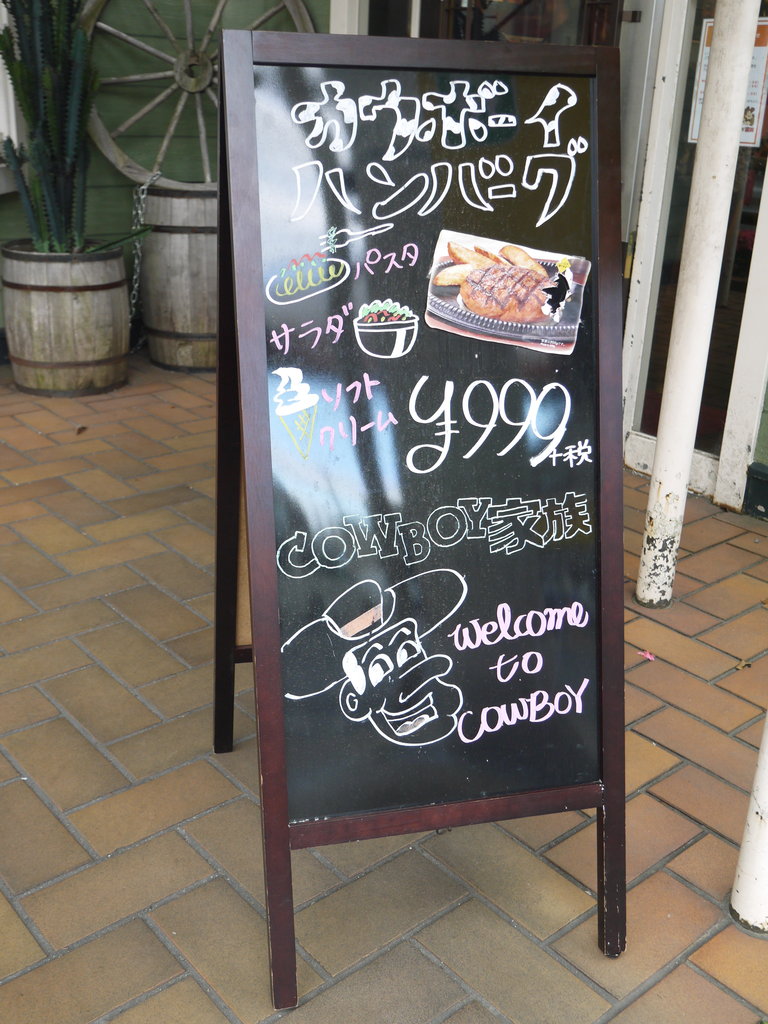 カウボーイ
ハンバーグ
パスタ
サラダ
ソフト
クリーム
¥999
+税
COWBOY家族
Welcome
to
COWBOY